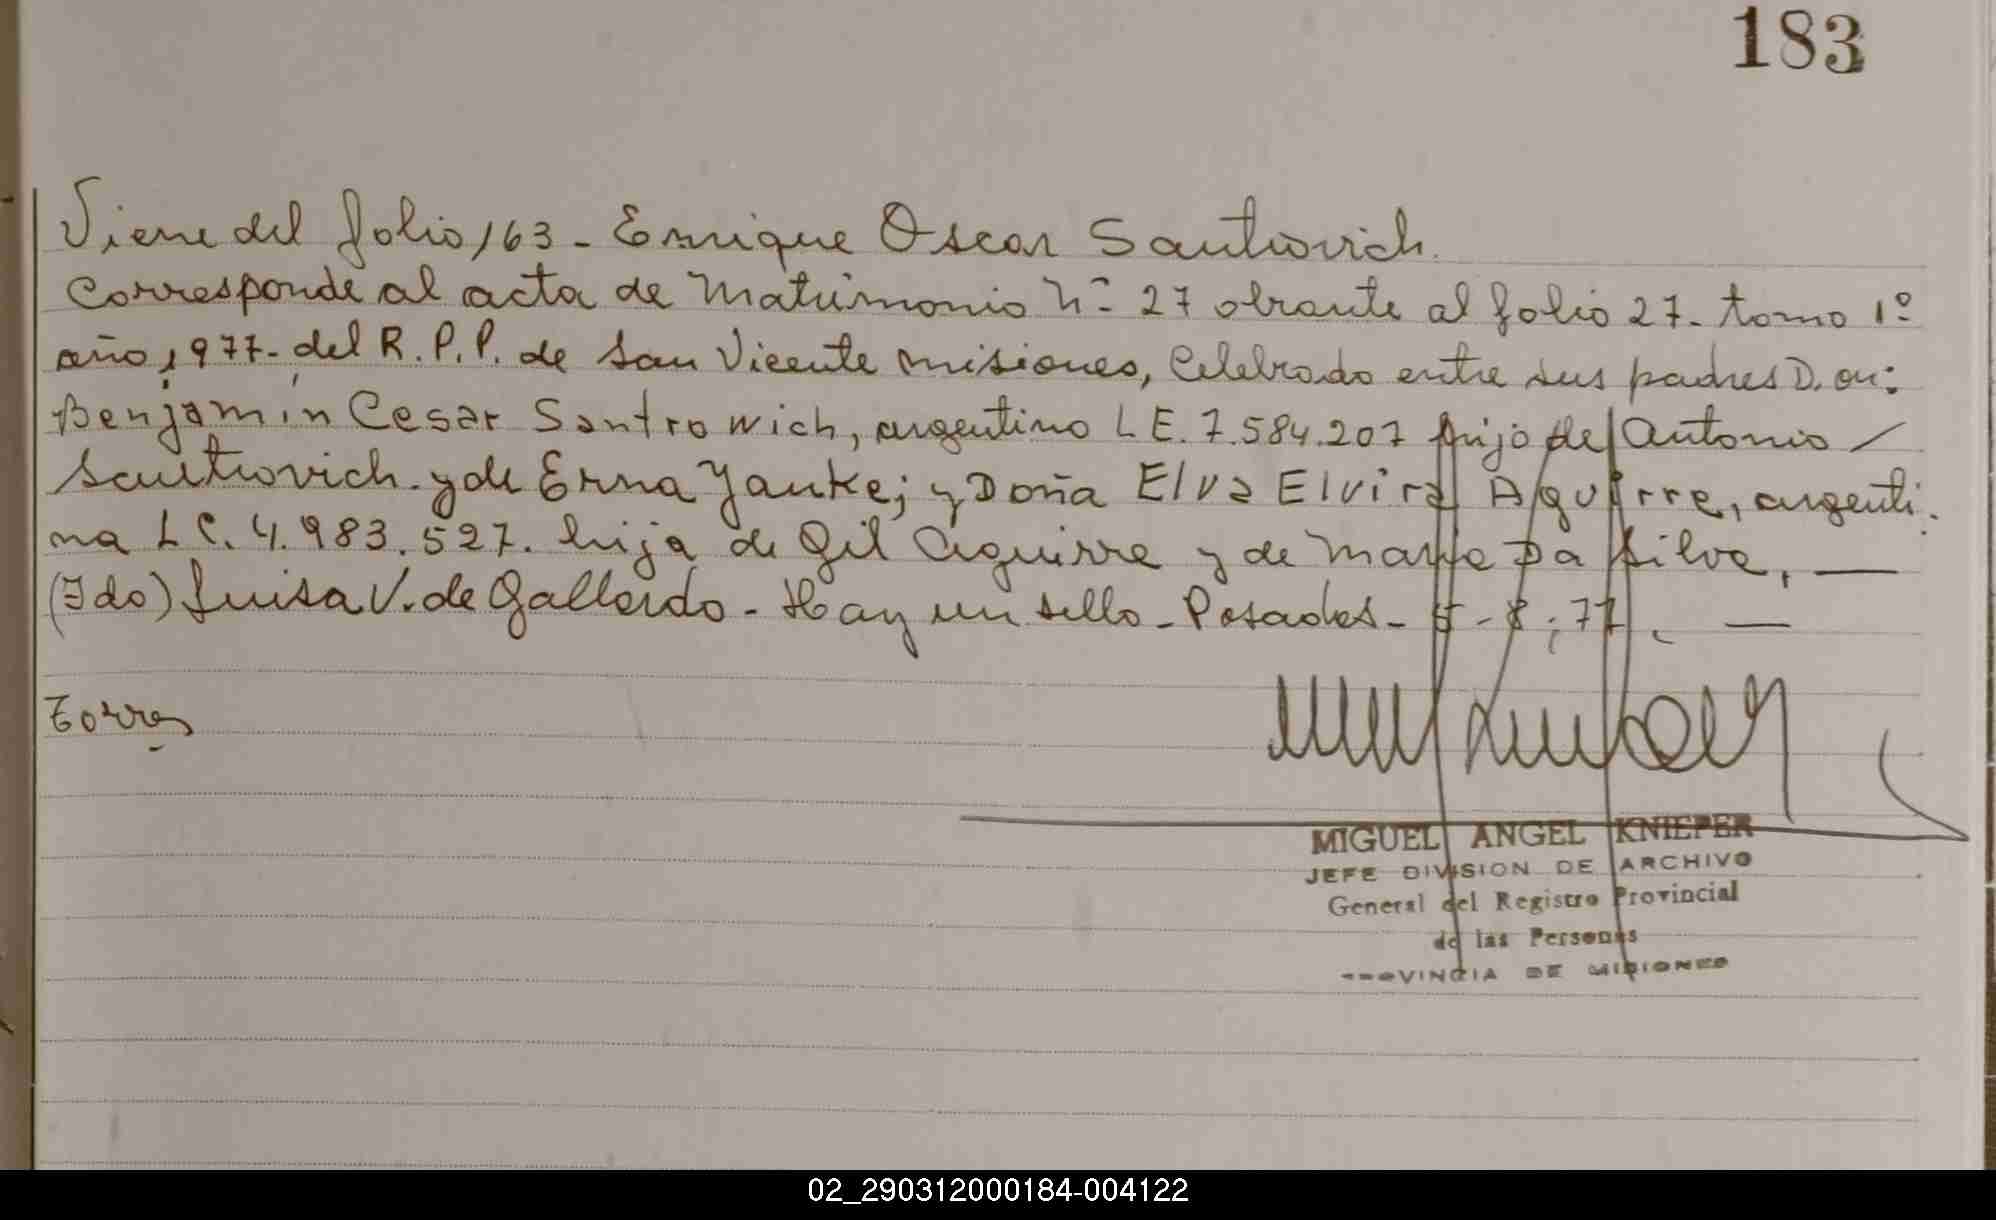 183
Viene del folio 163 - Enrique Oscar Santrovich.
Corresponde al acta de Matrimonio Nº 27 obrante al folio 27 - tomo 1º
año 1977 - del R.P.P. de San Vicente Misiones, Celebrado entre sus padres D. on:
Benjamin Cesar Santrowich, argentino L E. 7.584.207 hijo de Antonio /
Santrovich y de Erna Yanke; y Doña Elva Elvira Aguirre, argenti
na L C. 4.983.527. hija de Gil Aguirre y de Da Silva, —
(Fdo) Luisa V. de Gallardo - Hay un sello - Posadas - - 8 - 77. —
Torres
MIGUEL ANGEL KNIEPER
JEFE DIVISION DE ARCHIVO
General del Registro Provincial
de las Personas
PROVINCIA DE MISIONES
02_290312000184-004122